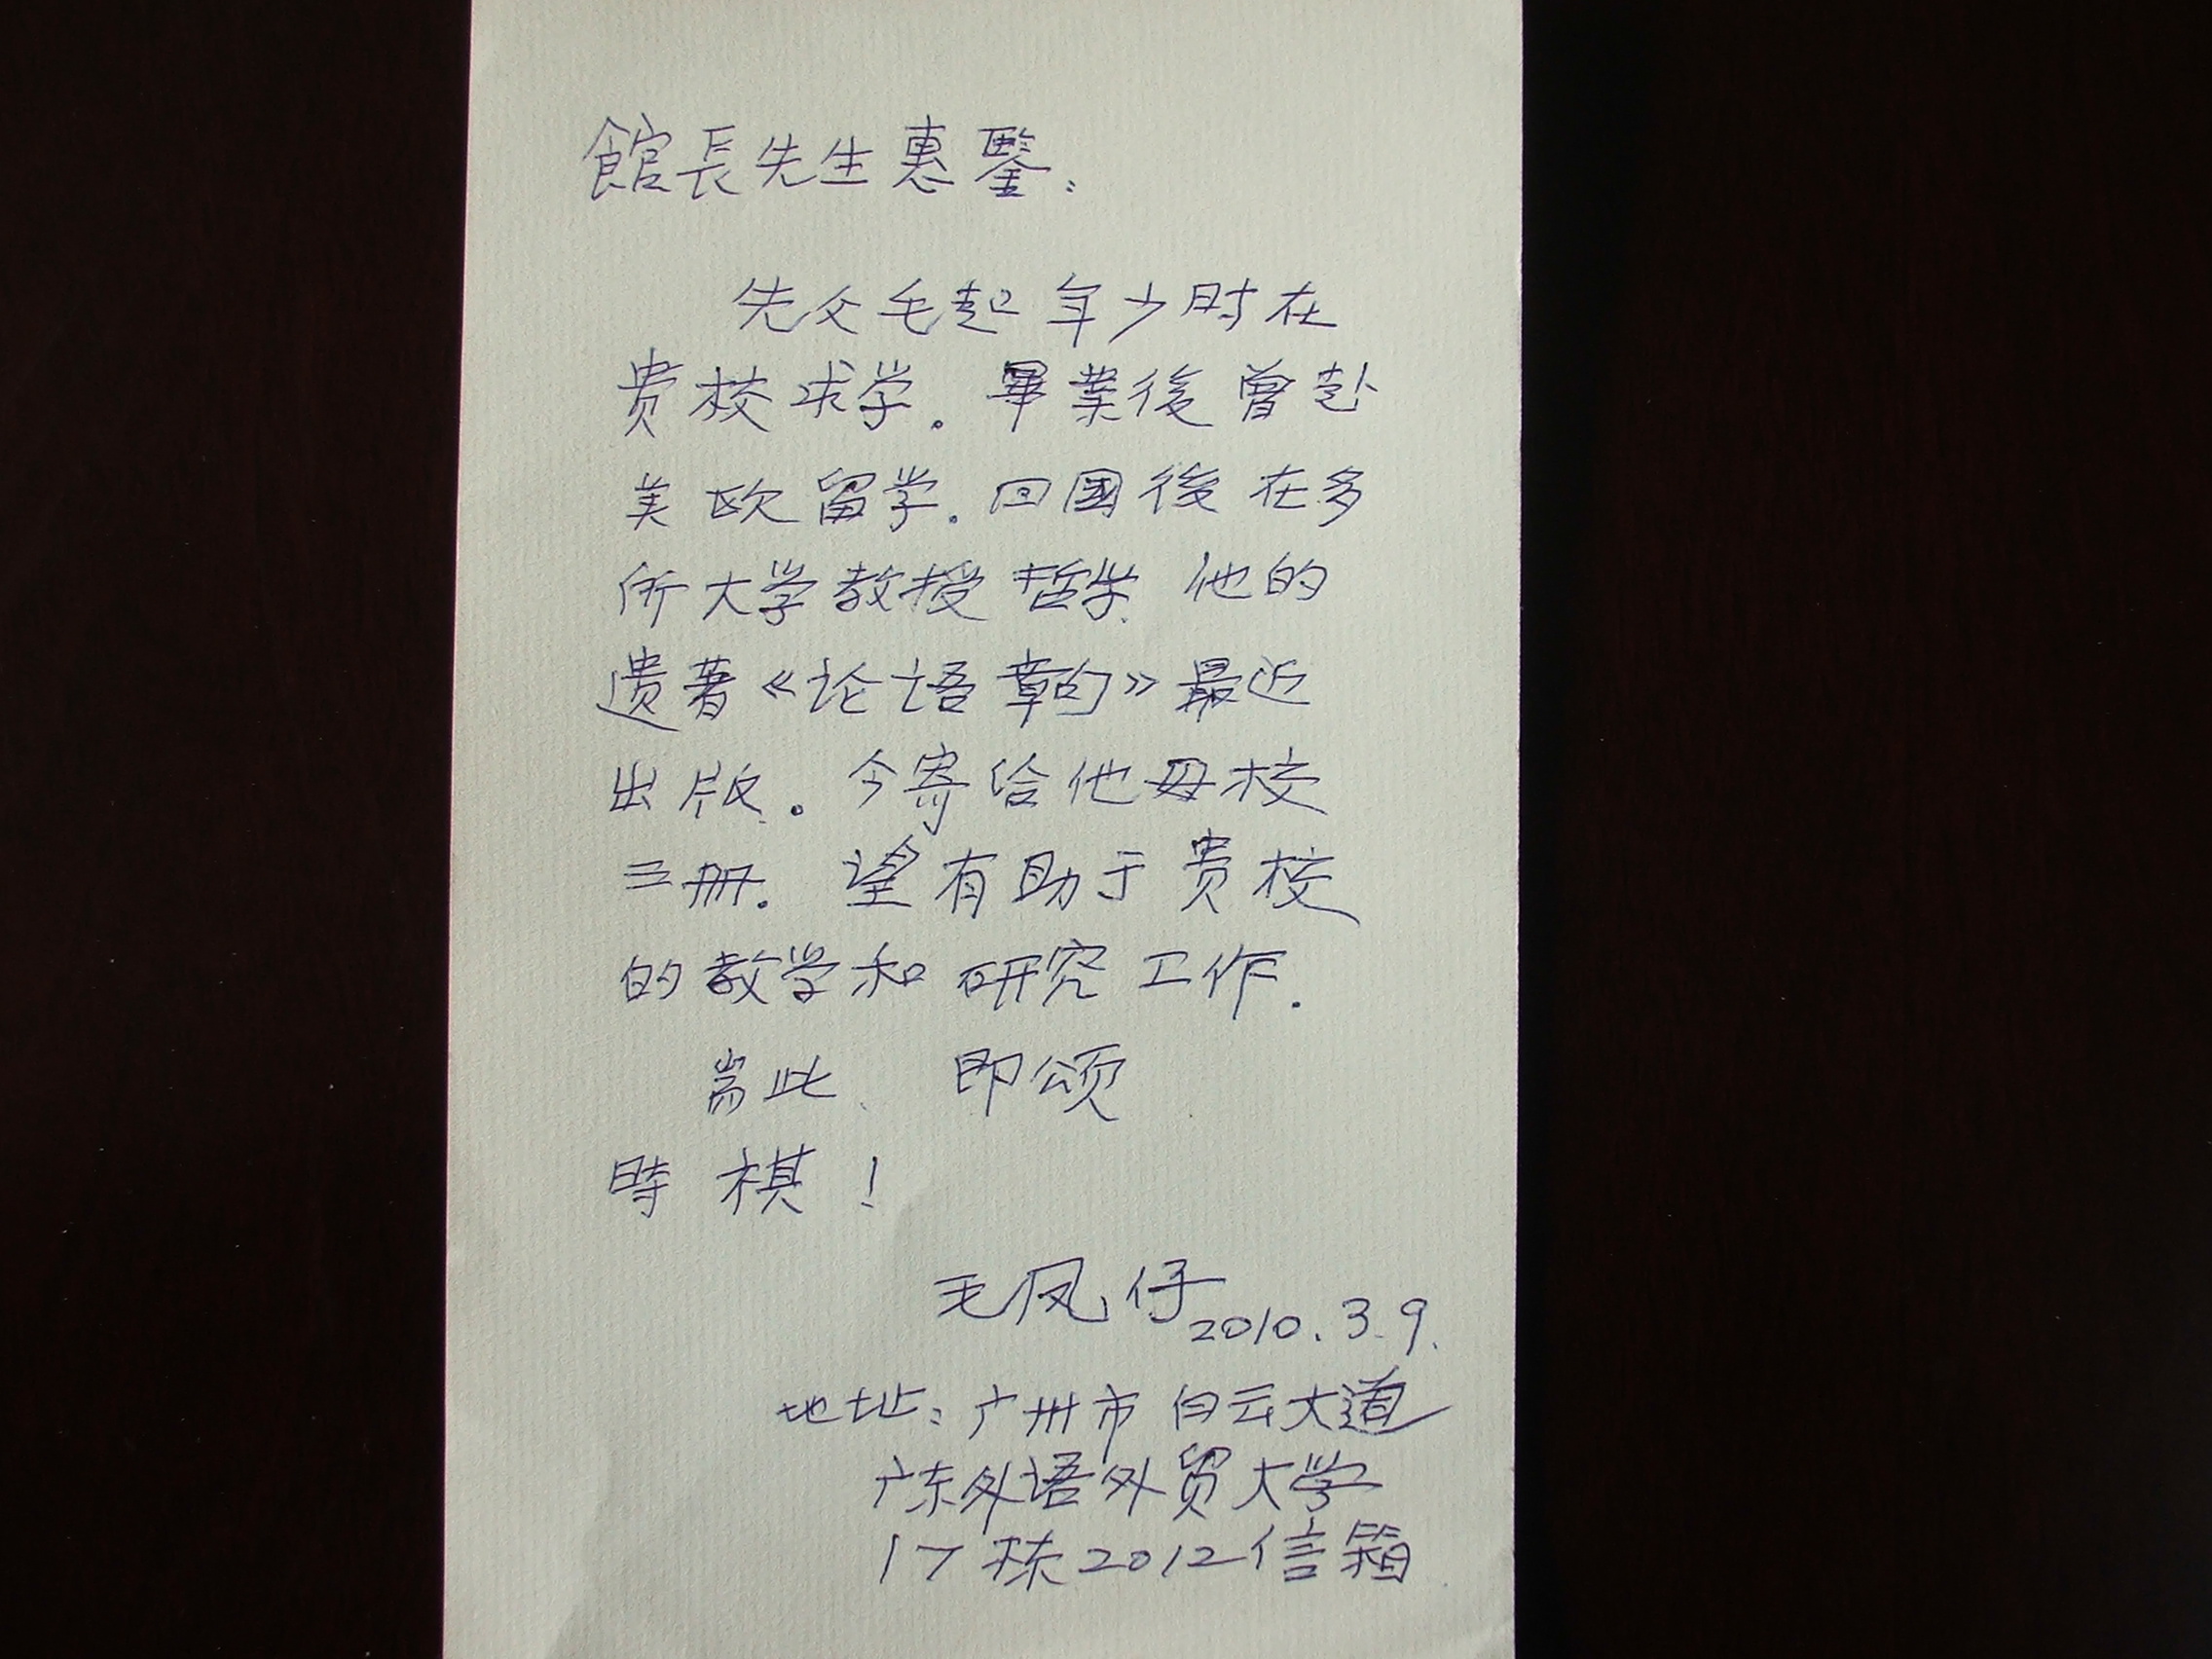 館長先生惠鑒：
先父毛起年少时在
贵校求学。畢業後曾赴
美欧留学.回國後在多
所大学教授哲学.他的
遗著《论语章句》最近
出版。今寄给他母校
三册.望有助于贵校
的教学和研究工作.
耑此、即颂
時祺！
毛凤仔2010.3.9.
地址：广州市白云大道
广东外语外贸大学
17栋2012信箱